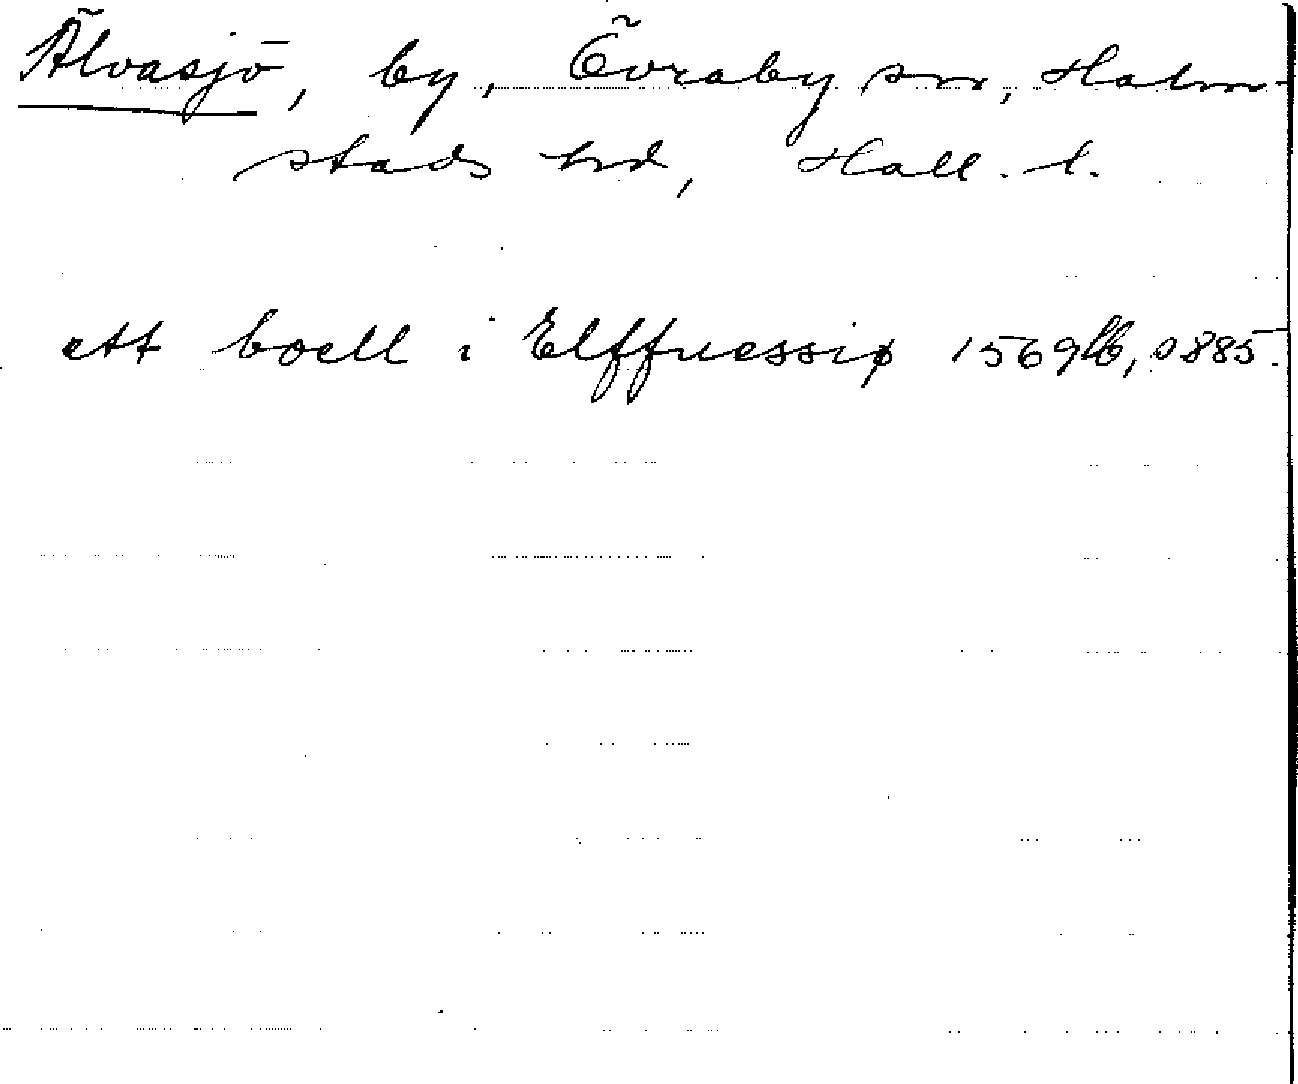 Älvasjö, by, Övraby sn, Halm-
stads hd, Hall. l.
ett boell i Elffuessiø 1569 lb, s 885.